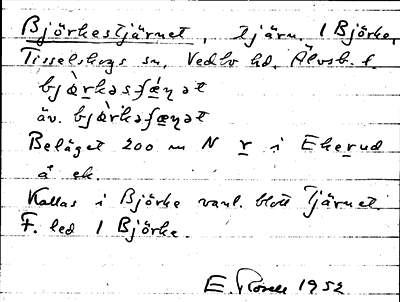 Björkestjärnet, tjärn. 1 Björke,
Tisselskogs sn, Vedbo hd, Älvsb. l.
bjœ̀rkəsʃǽṇət
äv. bjœ̀rkəʃæṇət
Beläget 200 m N r i Ekerud
å ek.
Kallas i Björke vanl. blott Tjärnet.
F. led 1 Björke.
E. Rosell 1952